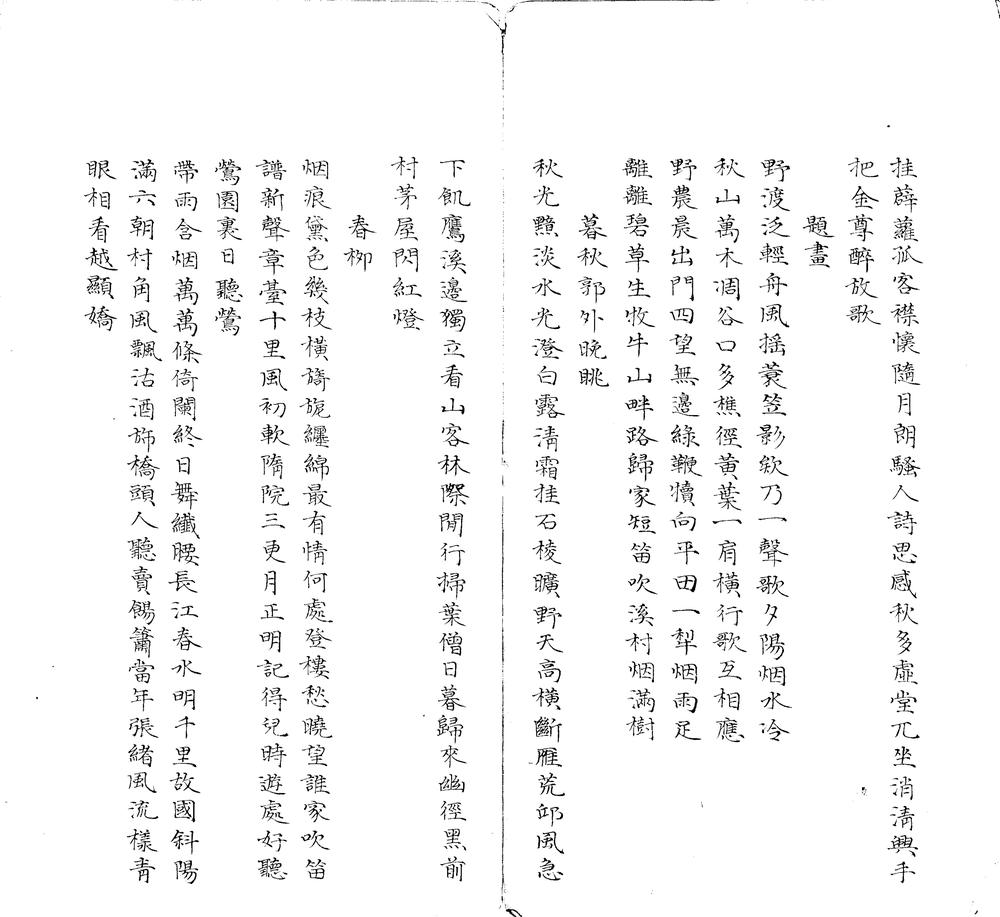 挂薜蘿孤客襟懷隨月朗騷人詩思感秋多虛堂兀坐消清興手
把金尊醉放歌
題畫
野渡泛輕舟風搖蓑笠影欸乃一聲歌夕陽烟水冷
秋山萬木凋谷口多樵徑黃葉一肩橫行歌互相應
野農晨出門四望無邊綠鞭犢向平田一犁烟雨足
離離碧草生牧牛山畔路歸家短笛吹溪村烟滿樹
暮秋郭外晚眺
秋光黯淡水光澄白露清霜挂石棱曠野天高橫斷雁荒邱風急
下飢鷹溪邊獨立看山客林際閒行掃葉僧日暮歸來幽徑黑前
村茅屋閃紅燈
春柳
烟痕黛色幾枝橫旖旎纏綿最有情何處登樓愁曉望誰家吹笛
譜新聲章臺十里風初軟隋院三更月正明記得兒時遊處好聽
鶯園裏日聽鶯
帶雨含烟萬萬條倚闌終日舞纖腰長江春水明千里故國斜陽
滿六朝村角風飄沽酒斾橋頭人聽賣餳簫當年張緒風流樣青
眼相看越顯嬌